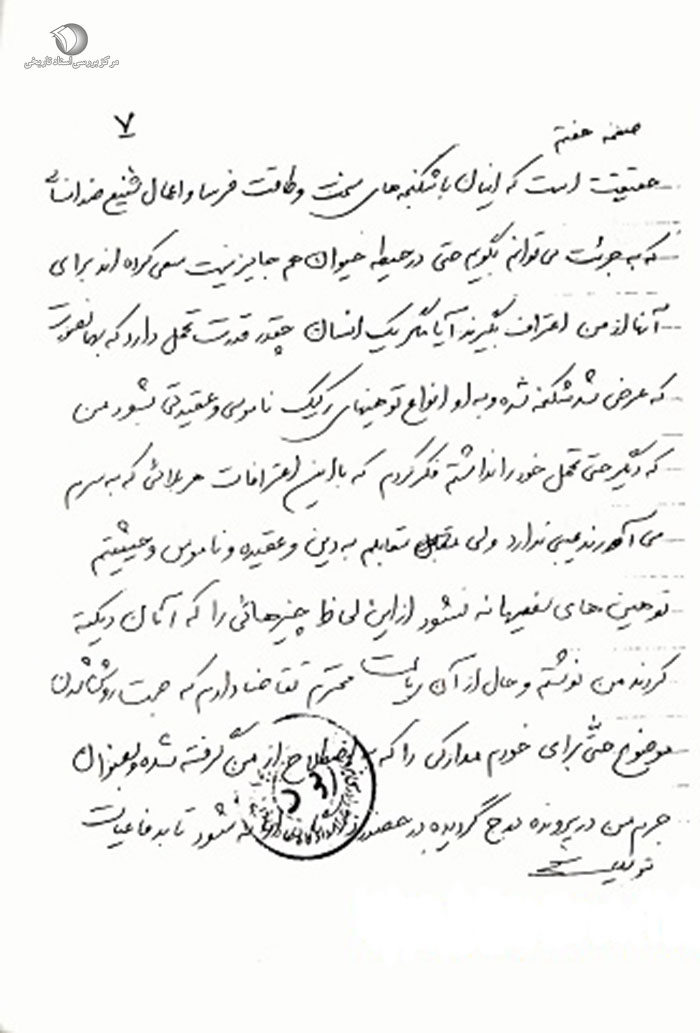 مرکز بررسی اسناد تاریخی
۷
صفحه هفتم
حقیقت است که اینان با شکنجه‌های سخت و طاقت فرسا و اعمال شنیع ضد انسانی
که به جرئت می‌توانم بگویم حتی در حیطه حیوان هم جایز نیست سعی کرده اند برای
آنها از من اعتراف بگیرند آیا مگر یک انسان چقدر قدرت تحمل دارد که بهانصورت
که عرض شد شکنجه شده و به او انواع توهینهای رکیک ناموسی و عقیدتی بشود من
که دیگر حتی تحمل خود را نداشتم فکر کردم که با این اعترافات هر بلائی که به سرم
می آورند عیبی ندارد ولی متقابلم به دین و عقیده و ناموس و حیثیتم
توهین های سفیهانه نشود از این لحاظ چیزهائی را که آنان دیکته
کردند من نوشتم و حال از آن ریاست محترم تقاضا دارم که جهت روشن شدن
موضوع حتّی برای خودم مدارکی را که به اصطلاح از من گرفته شده و بعنوان
جرم من در پرونده درج گردیده در حضور شود تا بدفاعیات